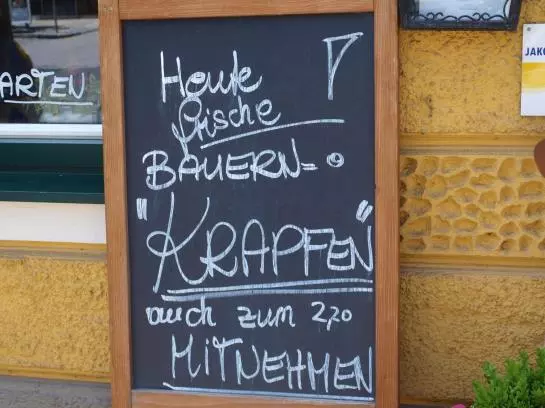 ARTEN
JAKO
Heute !
frische
BAUERN=
"KRAPFEN"
auch zum 2,20
MITNEHMEN